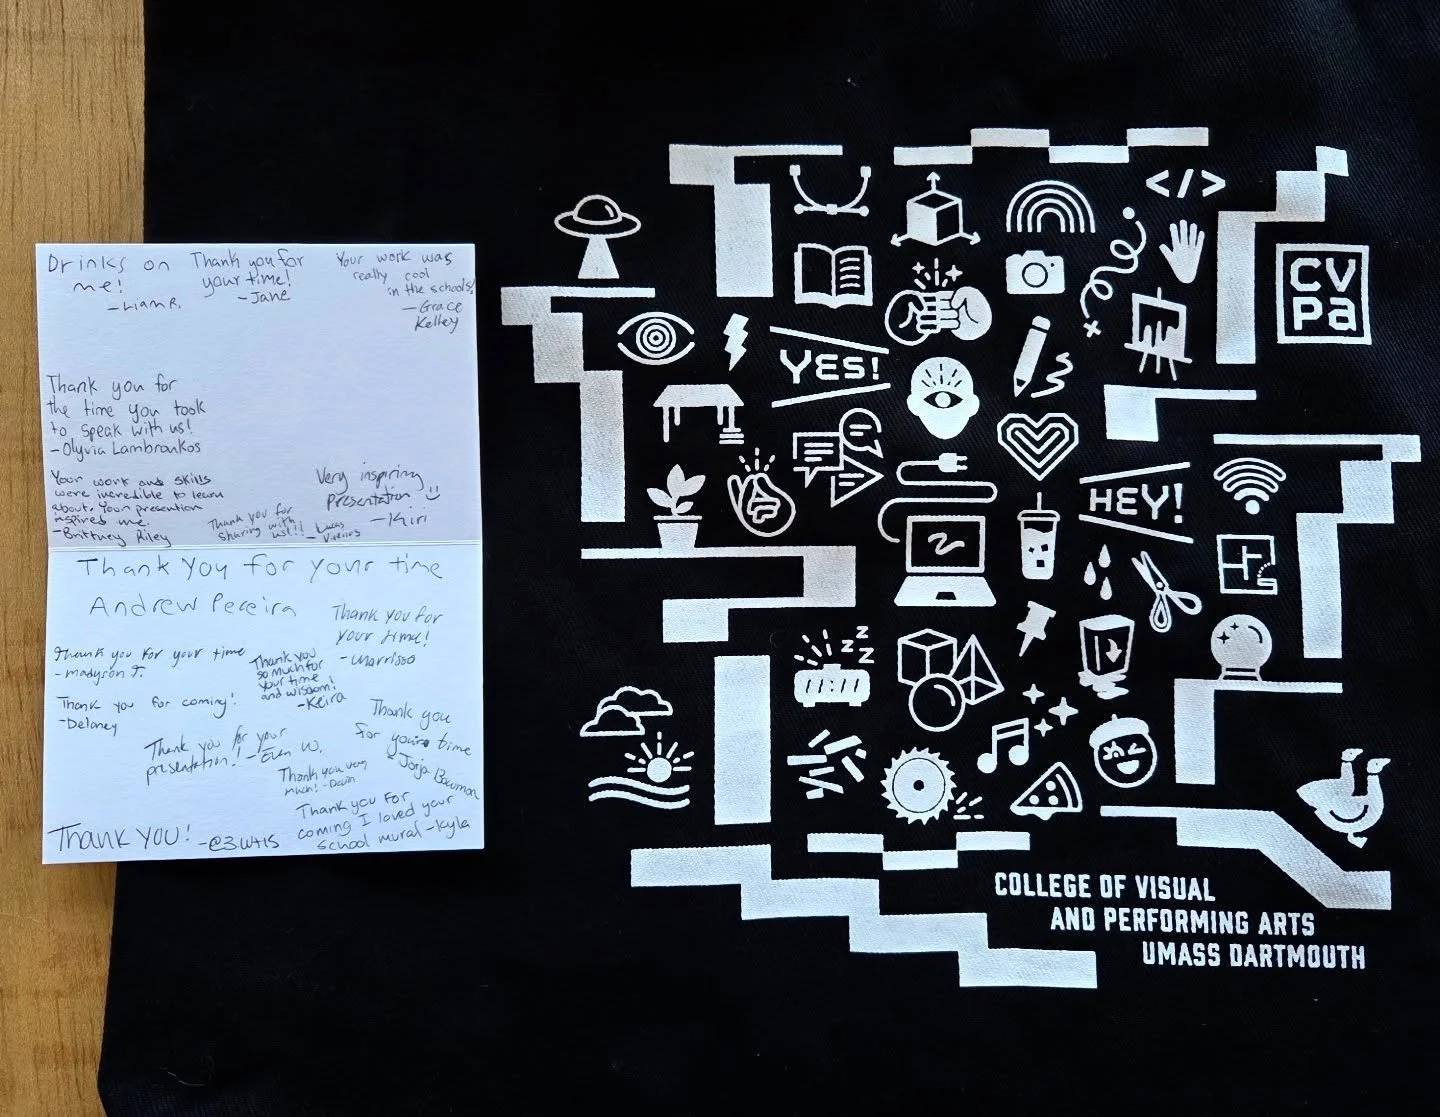 Drinks on
me!
- Liam R.
Thank you for
your time!
- Jane
Your work was
really cool
in the schools!
- Grace
Kelley
Thank you for
the time you took
to speak with us!
- Olyvia Lambroukos
Your work and skills
were incredible to learn
about. Your presentation
inspired me.
- Brittney Riley
Very inspiring
Presentation
- Kiri
Thank you for
sharing with
us!!! - Lucas
Thank you for your time
Andrew Pereira
Thank you for
your time!
- Marrissa
Thank you for your time
- madyson T.
Thank you
so much for
your time
and wisdom!
- Keira
Thank you for coming!
- Delaney
Thank you for your
presentation! - Evan W.
Thank you
for your time
- Jorja Bowman
Thank you very
much! -
Thank you for
coming I loved your
school mural - Kyla
Thank you!
</>
CV
Pa
YES!
HEY!
z z
z z
COLLEGE OF VISUAL
AND PERFORMING ARTS
UMASS DARTMOUTH